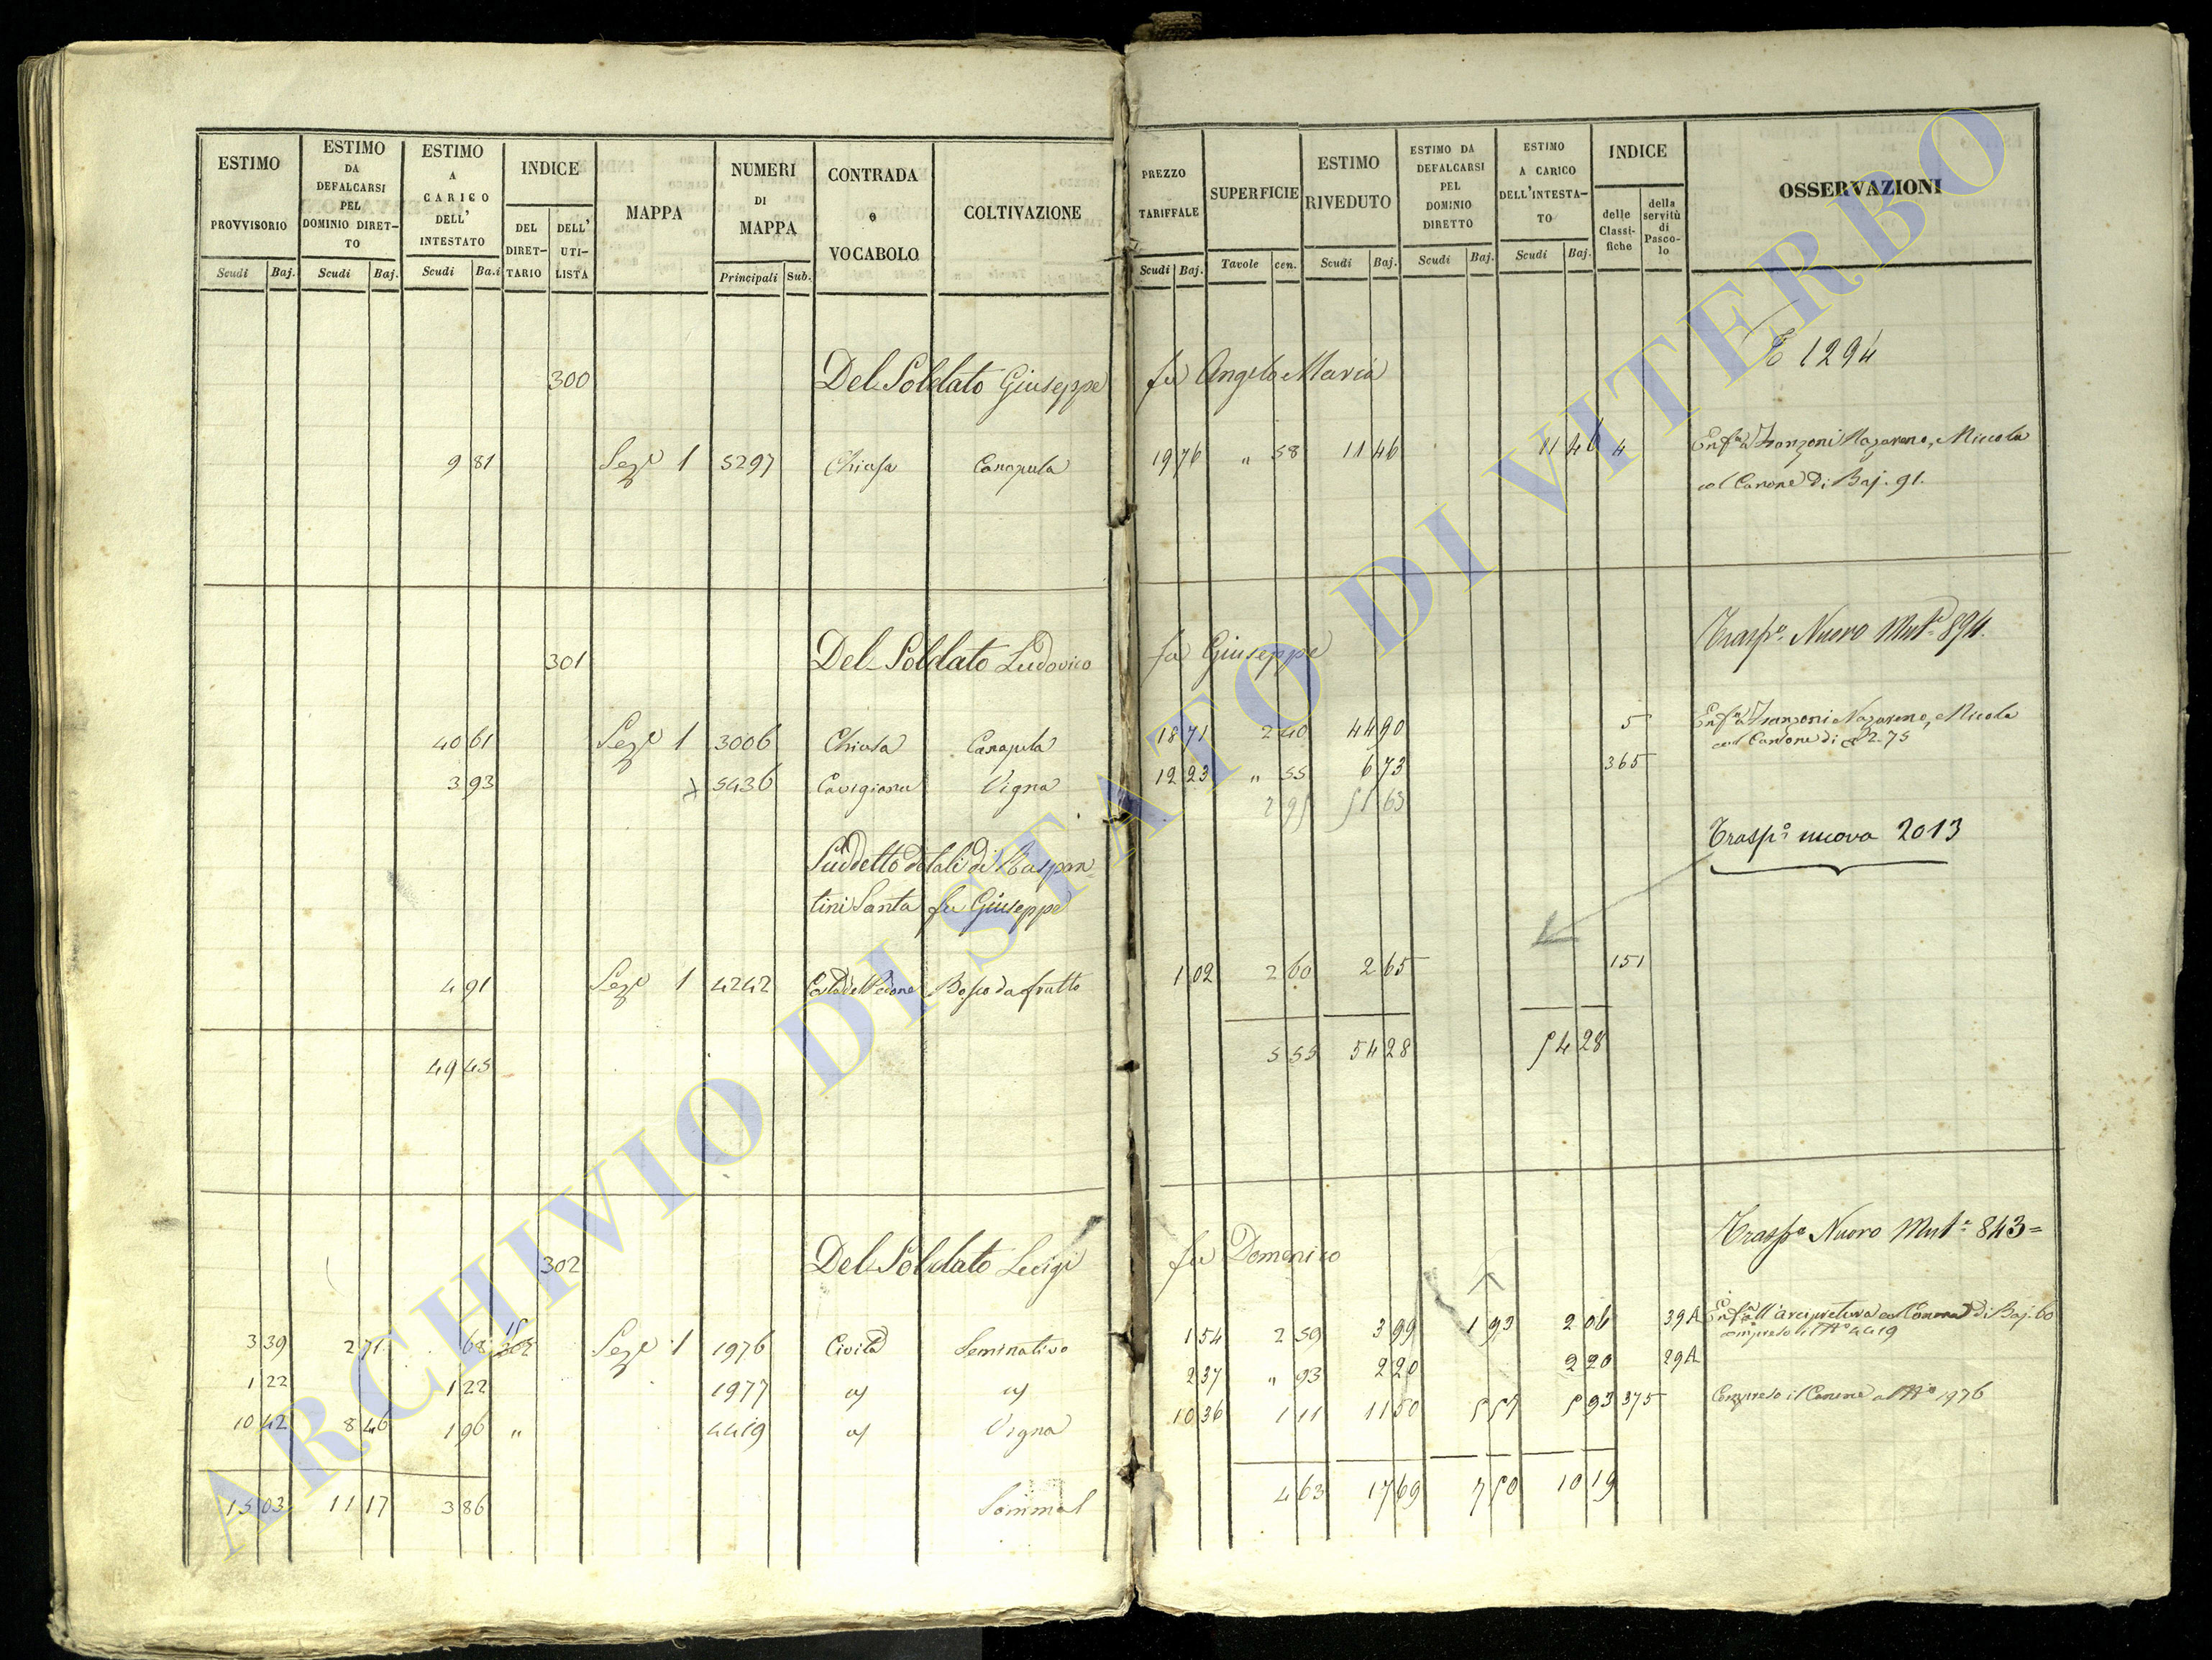 ESTIMO PROVVISORIO Scudi Baj.
ESTIMO DA DEFALCARSI PEL DOMINIO DIRET-TO Scudi Baj.
ESTIMO A CARICO DELL' INTESTATO Scudi Baj
INDICE DEL DIRET-TARIO DELL' UTI-LISTA
MAPPA
NUMERI DI MAPPA Principali Sub.
CONTRADA e VOCABOLO
COLTIVAZIONE
PREZZO TARIFFALE Scudi Baj.
SUPERFICIE Tavole cen.
ESTIMO RIVEDUTO Scudi Baj.
ESTIMO DA DEFALCARSI PEL DOMINIO DIRETTO Scudi Baj.
ESTIMO A CARICO DELL'INTESTA-TO Scudi Baj.
INDICE delle Classi-fiche della servitù di Pasco-lo
OSSERVAZIONI
1294
300 Del Soldato Giuseppe fu Angelo Maria
9 81 Sez.e 1 5297 Chiusa Canapula 19 76 " 58 11 46 11 46 4 Enf.a Franzoni Nazareno, Niccola
col Canone di Baj. 91.
Trasp.o Nuovo Mut.e 894.
301 Del Soldato Ludovico fu Giuseppe
40 61 Sez.e 1 3006 Chiusa Canapula 18 71 2 40 44 90 5 Enf.a Franzoni Nazareno, Nicola
col Canone di 2.75
3 93 5436 Cavigiana Vigna 12 23 " 55 6 73 365
2 95 51 63
Trasp.o nuova 2013
Suddetto dotali di Raspan-
tini Santa fu Giuseppe
4 91 Sez.e 1 4242 Bosco da frutto 1 02 2 60 2 65 151
49 45 5 55 54 28 54 28
Trasp.o Nuovo Mut.e 843=
302 Del Soldato Luigi fu Domenico
3 39 2 71 68 Sez.e 1 1976 Civita Seminativo 1 54 2 59 3 99 1 93 2 06 39A Enf.a all'arcipretura col Canone di Baj. 60
compreso il N.o 4419
1 22 1 22 1977 2 37 " 93 2 20 2 20 29A
10 42 8 46 1 96 " 4419 Vigna 10 36 1 11 11 50 5 57 5 93 375 Compreso il Canone al N.o 1976
15 03 11 17 3 86 4 63 17 69 7 50 10 19
ARCHIVIO DI STATO DI VITERBO